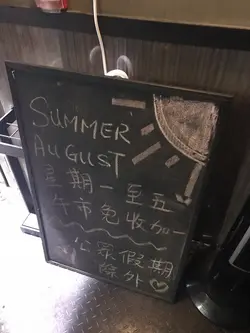 SUMMER
AUGUST
星期一至五
午市免收加一
公眾假期
除外